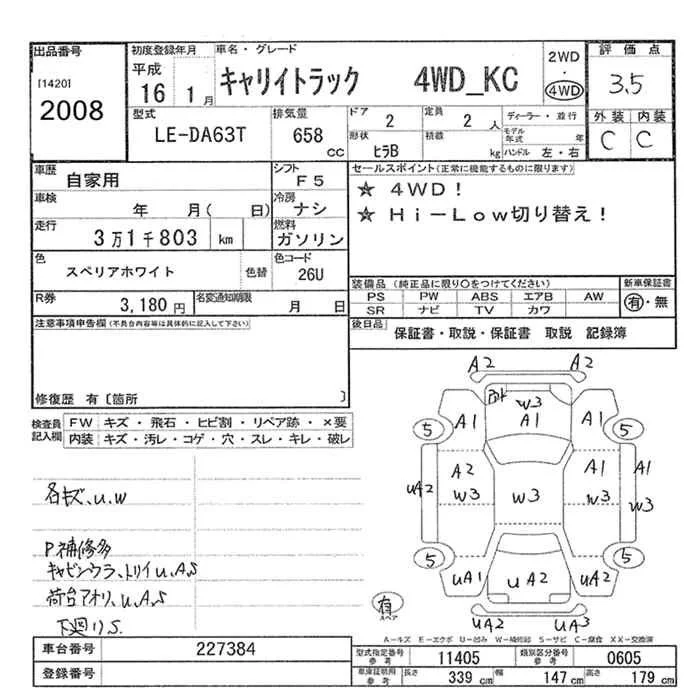 出品番号
[1420]
2008
初度登録年月
平成
16 1 月
車名・グレード
キャリイトラック 4WD_KC
2WD
・
4WD
評価点
3.5
外装 内装
C C
型式
LE-DA63T
排気量
658
cc
ドア
2
定員
2 人
形状
ヒラB
積載
kg
ディーラー・並行
モデル年式 年
ハンドル 左・右
車歴
自家用
シフト
F5
車検
年 月( 日)
冷房
ナシ
走行
3万1千803 km
燃料
ガソリン
色
スペリアホワイト
色替
色コード
26U
R券
3,180 円
名変通知期限
月 日
セールスポイント(正常に機能するものに限ります)
★ 4WD!
★ Hi-Low切り替え!
装備品 (純正品に限り〇をつけてください)
PS PW ABS エアB AW
SR ナビ TV カワ
新車保証書
有・無
後日品
保証書・取説・保証書 取説 記録簿
注意事項申告欄(不具合内容等は具体的に記入して下さい)
修復歴 有〔箇所 〕
検査員
記入欄
FW キズ・飛石・ヒビ割・リペア跡・×要
内装 キズ・汚レ・コゲ・穴・スレ・キレ・破レ
名キズ、u.w
P補修多
キャビンウラ、トリイu.A.S
荷台アオリ、u.A.S
下廻りS.
A2 A2
W3
A1 A1 A1
5 5
A2 A1 A1
uA2 W3 W3 W3 W3
5 5
uA1 uA2 A2
uA2 uA3
有
スペア
A-キズ E-エクボ U-凹み W-補修跡 S-サビ C-腐食 XX-交換済
車台番号
227384
登録番号
型式指定番号
参考
11405
類別区分番号
参考
0605
車庫証明用
参考
長さ
339 cm
幅
147 cm
高さ
179 cm